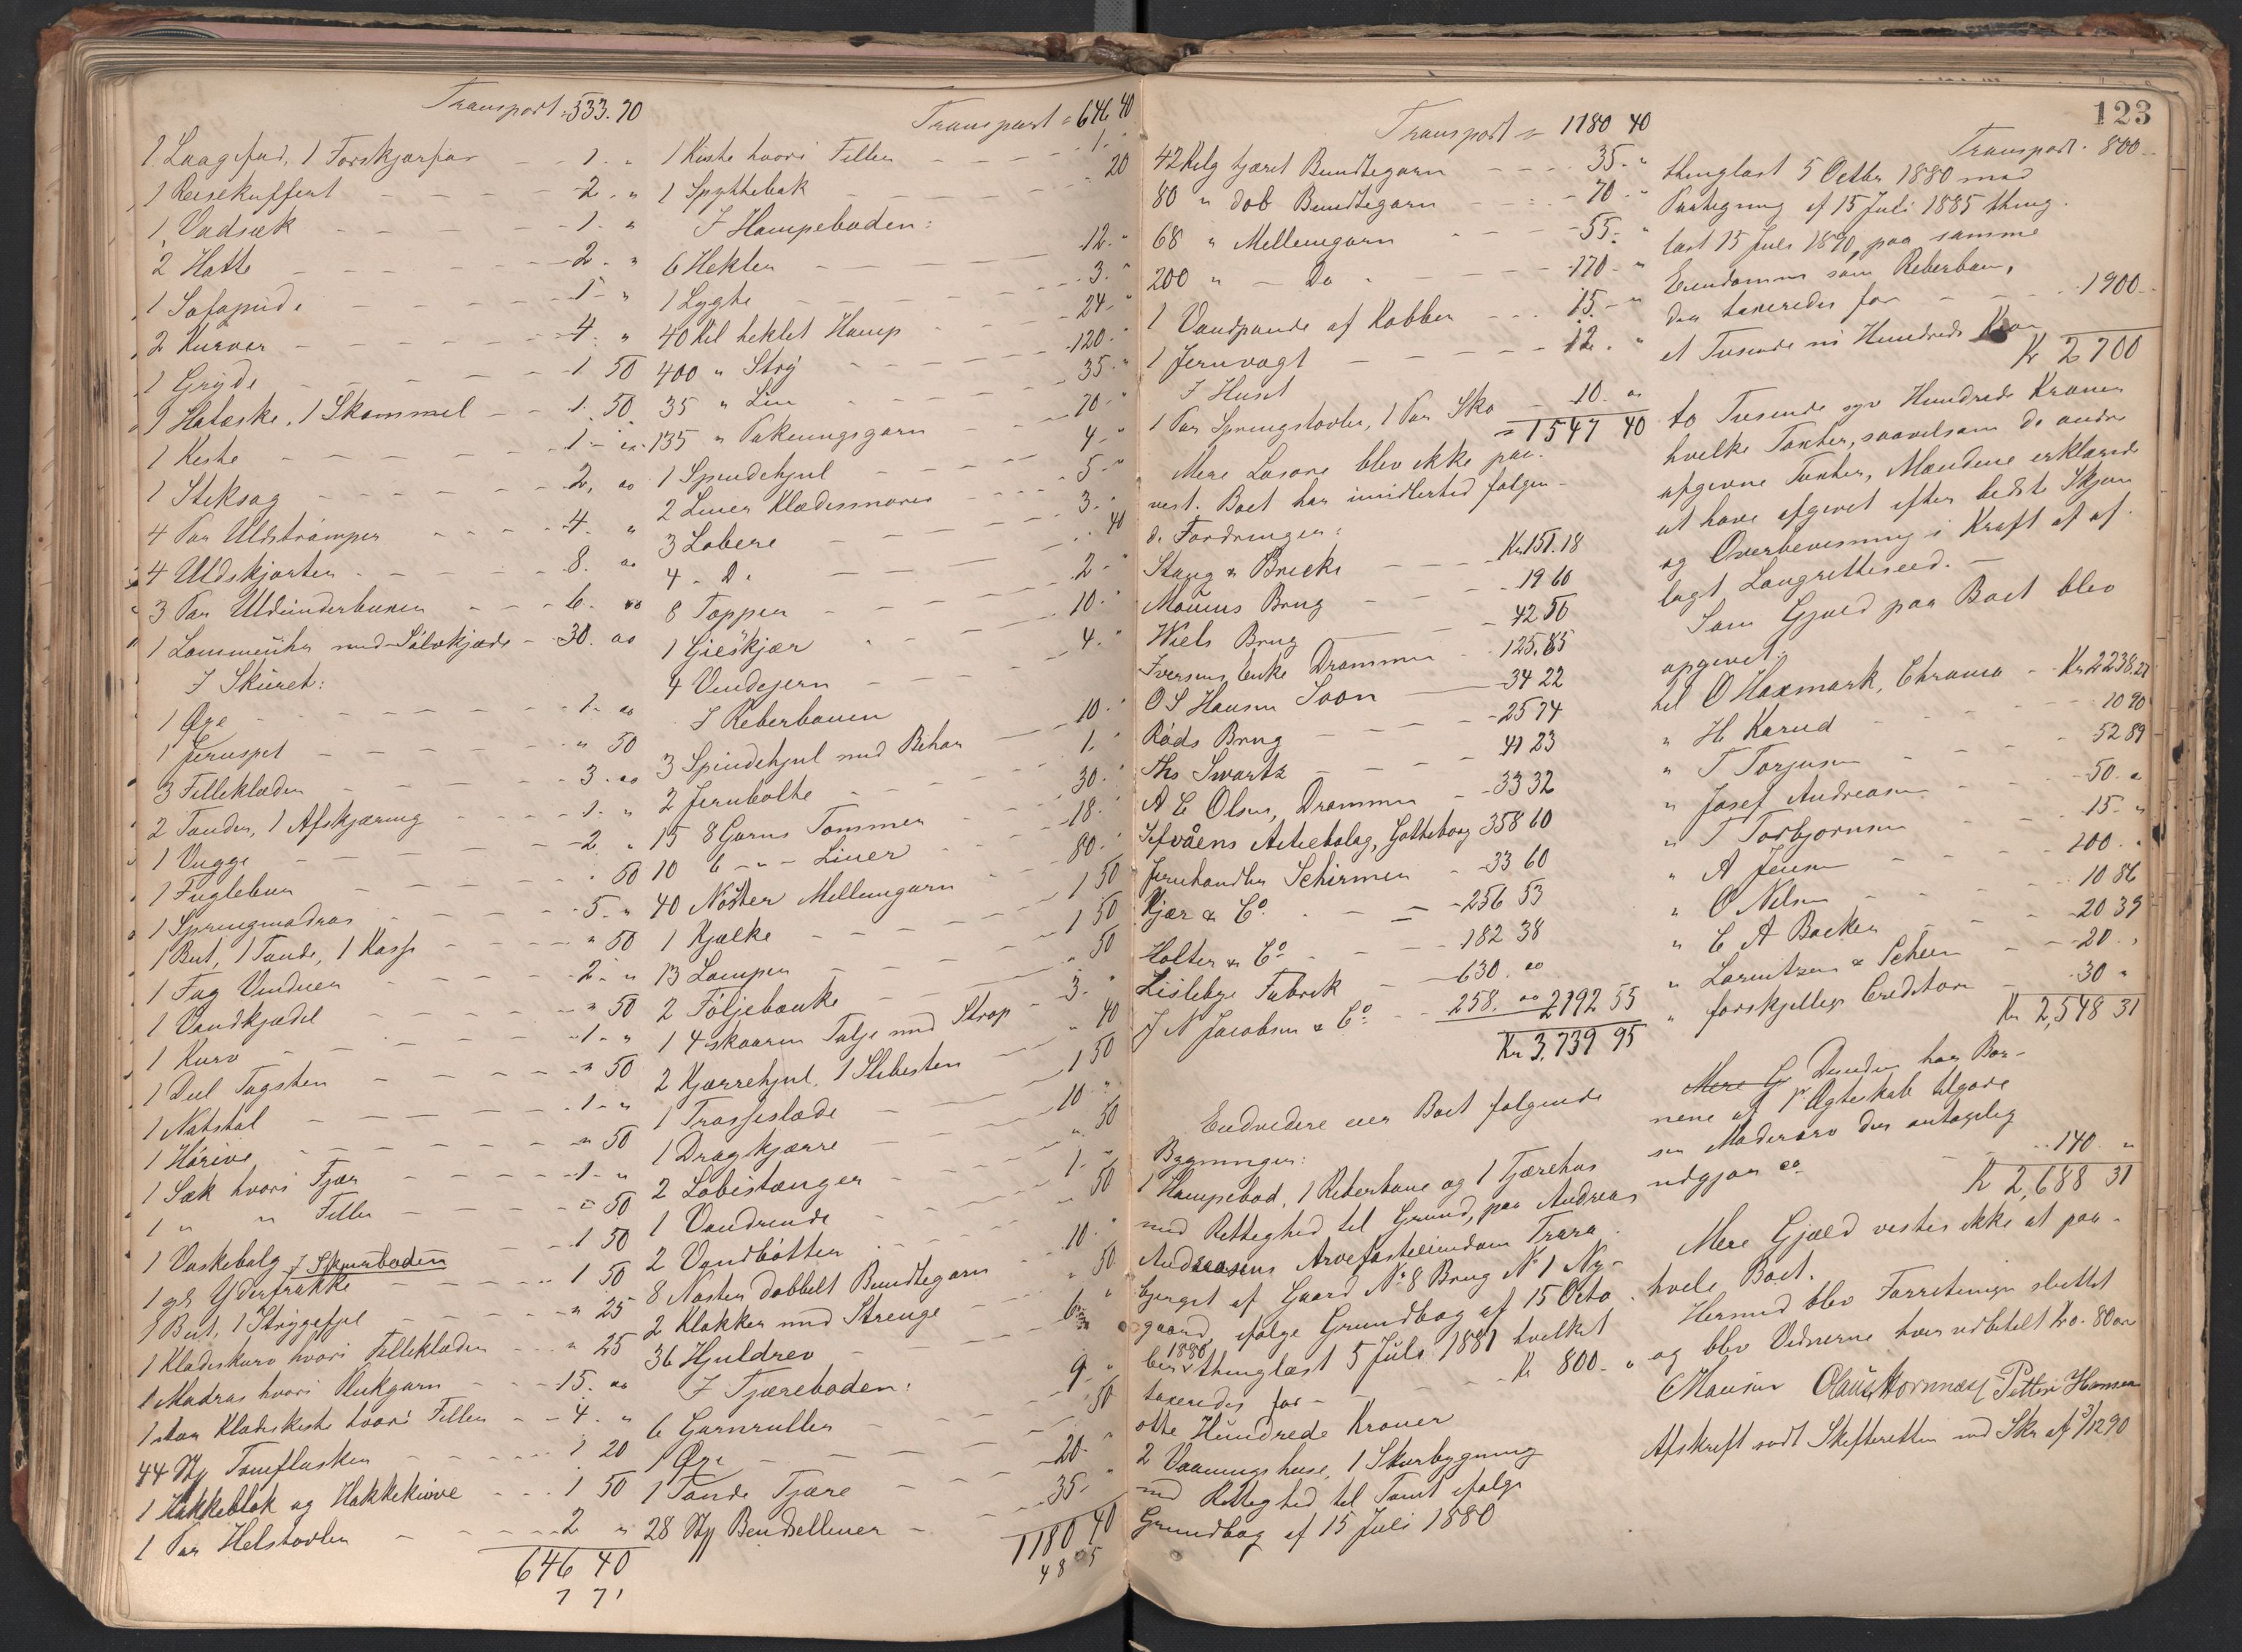 Transport = 533. 70
1 Laagefad, 1 Forskjærfar - 1. "
1 Reisekuffert - 2. "
1 Vadsæk - 1. "
2 Hatte - 2. "
1 Sofapude - 1 - "
2 Kurver - 4. "
1 Gryde - 1 50
1 Hateske, 1 Skammel - 1. 50
1 Kiste - 1 - "
1 Stiksag - 2. "
4 Par Uldstrømper - 4. "
4 Uldskjorter - 8. "
3 Par Uldunderbuxer - 6. "
1 Lommeuhr med Sølvkjæde - 30. "
I Skuret:
1 Øxe - 1. "
1 Jernspet - " 50
3 Filleklæder - 3. "
2 Tønder, 1 Afskjæring - 1. "
1 Vugge - 2 "
1 Fuglebur - " 50
1 Springmadras - 5. "
1 But, 1 Tønde, 1 Kasse - " 50
1 Fag Vinduer - 2. "
1 Vandkjedel - " 50
1 Kurv - 1. "
1 Deel Tagsten - " 50
1 Natstol - 1 - "
1 Hørive - " 50
1 Sæk hvori Fjær - 1 - "
1 " " Filler - " 50
1 Vaskebalg - 1 50
I Skuurboden
1 gl Yderfrakke - 1 50
1 But, 1 Strygefjel - " 25
1 Klædeskurv hvori Filleklæder - " 25
1 Madras hvori Plukgarn - 15. "
1 stor Klædeskiste hvori Filler - 4. "
44 Stk Tomflasker - 1 20
1 Hakkeblok og Hakkeknive - 1 50
1 Par Helstøvler - 2 "
646 40
7 71
Transport = 646 40
1 Kiste hvori Filler - 1. "
1 Spyttebak - " 20
I Hampeboden:
6 Hekler - 12. "
1 Lygte - 3. "
40 Kil heklet Hamp - 24 - "
400 " Stry - 120. "
35 " Lin - 35. "
135 " Pakningsgarn - 70. "
1 Spindehjul - 4 - "
2 Liner Klædessnorer - 5 - "
3 Løbere - 3. "
4 - Do - " 40
8 Toppen - 2 - "
1 Gieskjær - 10. "
4 Vendejern - 4. "
I Reberbanen
3 Spindehjul med Behør - 10. "
2 Jernbolte - 1. "
15 8 Garns Tømmer - 30. "
10 6 - " - Liner - 18. "
40 Nøster Mellemgarn - 80. "
1 Kjælke - 1 50
13 Lamper - 1 50
2 Føljebænke - " 50
1 4 skaaren Talje med Strop - 3. "
2 Kjærrehjul, 1 Slibesten - " 40
1 Trosseslæde - 1 50
1 Dragkjærre - 10. "
2 Løbestænger - " 50
1 Vandrende - 1. "
2 Vandbøtter - " 50
8 Nøster dobbelt Bundtegarn - 10. "
2 Klokker med Strenge - " 50
36 Hjuldrev - 6 "
I Tjæreboden:
6 Garnruller - 9 "
1 Øxe - " 50
1 Tønde Tjære - 20 - "
28 Stk Bendselliner - 35 - "
1180 40
48 05
Transport = 1180 40
42 Kilg tjæret Bundtegarn - 35 - "
80 " dob Bundtegarn - 70 - "
68 " Mellemgarn - 55 - "
200 " - Do - 170 - "
1 Vandpande af Kobber - 15. - "
1 Jernvægt - 12. "
I Huset
1 Par Springstøvler, 1 Par Sko - 10. "
= 1547 40
Mere Løsøre blev ikke paa-
vist. Boet har imidlertid følgen-
de Fordringer:
Stang & Bricks - Kr. 151. 18
Moums Brug - 19 60
Wiels Brug - 42 50
Iversens Enke Drammen - 125. 85
O S Hansen Soon - 34 22
Røds Brug - 25 74
Ths Swartz - 41 23
A C Olsen, Drammen - 33 32
Sefväens Actiebolag, Gøtteborg 358 60
Jernhandler Schirmer - 33 60
Kjær & Co. - 256 53
Holter & Co - 182 38
Lisleby Fabrik - 630. "
J N Jacobsen & Co. - 258. " 2192 55
Kr 3,739 95
Endvidere eier Boet følgende
Bygninger:
1 Hampebod, 1 Reberbane og 1 Tjærehus
med Rettighed til Grund, paa Andreas
Andreasens Arvefæsteeiendom Trara
bjerget af Gaard No 8 Brug No 1 Ny-
gaard, ifølge Grundbog af 15 Octo
ber 1880 thinglæst 5 Juli 1881 hvilket
taxeredes for - Kr 800. "
otte Hundrede Kroner
2 Vaaningshuse, 1 Skurbygning
med Rettighed til Tomt ifølge
Grundbog af 15 Juli 1880
123
Transport. 800 -
thinglæst 5 Octbr 1880 med
Paategning af 15 Juli 1885 thing-
læst 15 Juli 1890, paa samme
Eiendomme som Reberban,
der taxeredes for - 1900 -
et Tusende ni Hundrede Kroner
Kr 2700
to Tusende syv Hundrede Kroner
hvilke Taxter, saavelsom de andre
afgivne Taxter, Mændene erklærede
at have afgivet efter bedste Skjøn
og Overbevisning i Kraft af af-
lagt Laugretteseed. -
Som Gjæld paa Boet blev
opgivet:
til O Haxmark, Chrania - Kr 2238. 27
" H Karud - 10 90
" T Torjusen - 52 89
" Josef Andreasen - 50. "
" T Torbjørnsen - 15. "
" A Jensen - 100. "
" O Nilsen - 10 86
" C A Backer - 20 39
" Lorentzen & Scheen - 20. "
" forskjellige Creditorer - 30 "
Kr 2,548 31
Mere G Desuden har Bør-
nene af 1e Ægteskab tilgode
sin Mødrearv der antagelig
udgjør ca - 140. "
K 2,688 31
Mere Gjæld vistes ikke at paa-
hvile Boet.
Hermed blev Forretningen sluttet
og blev Vidnerne hver udbetalt Kro. - 80 øre
C Hansen Olaus Hornnæss Petter Hansen
Afskrift sendt Skifteretten med Skr af 3/12 90